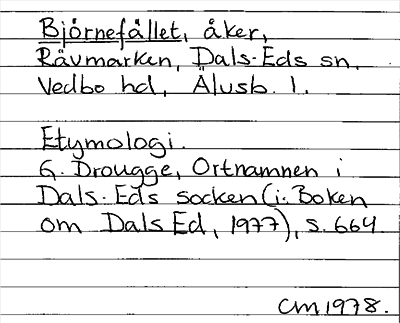 Björnefället, åker,
Rävmarken, Dals-Eds sn,
Vedbo hd, Älvsb. l.
Etymologi.
G. Drougge, Ortnamnen i
Dals-Eds socken (i: Boken
om Dals Ed, 1977), s. 664
CM 1978.